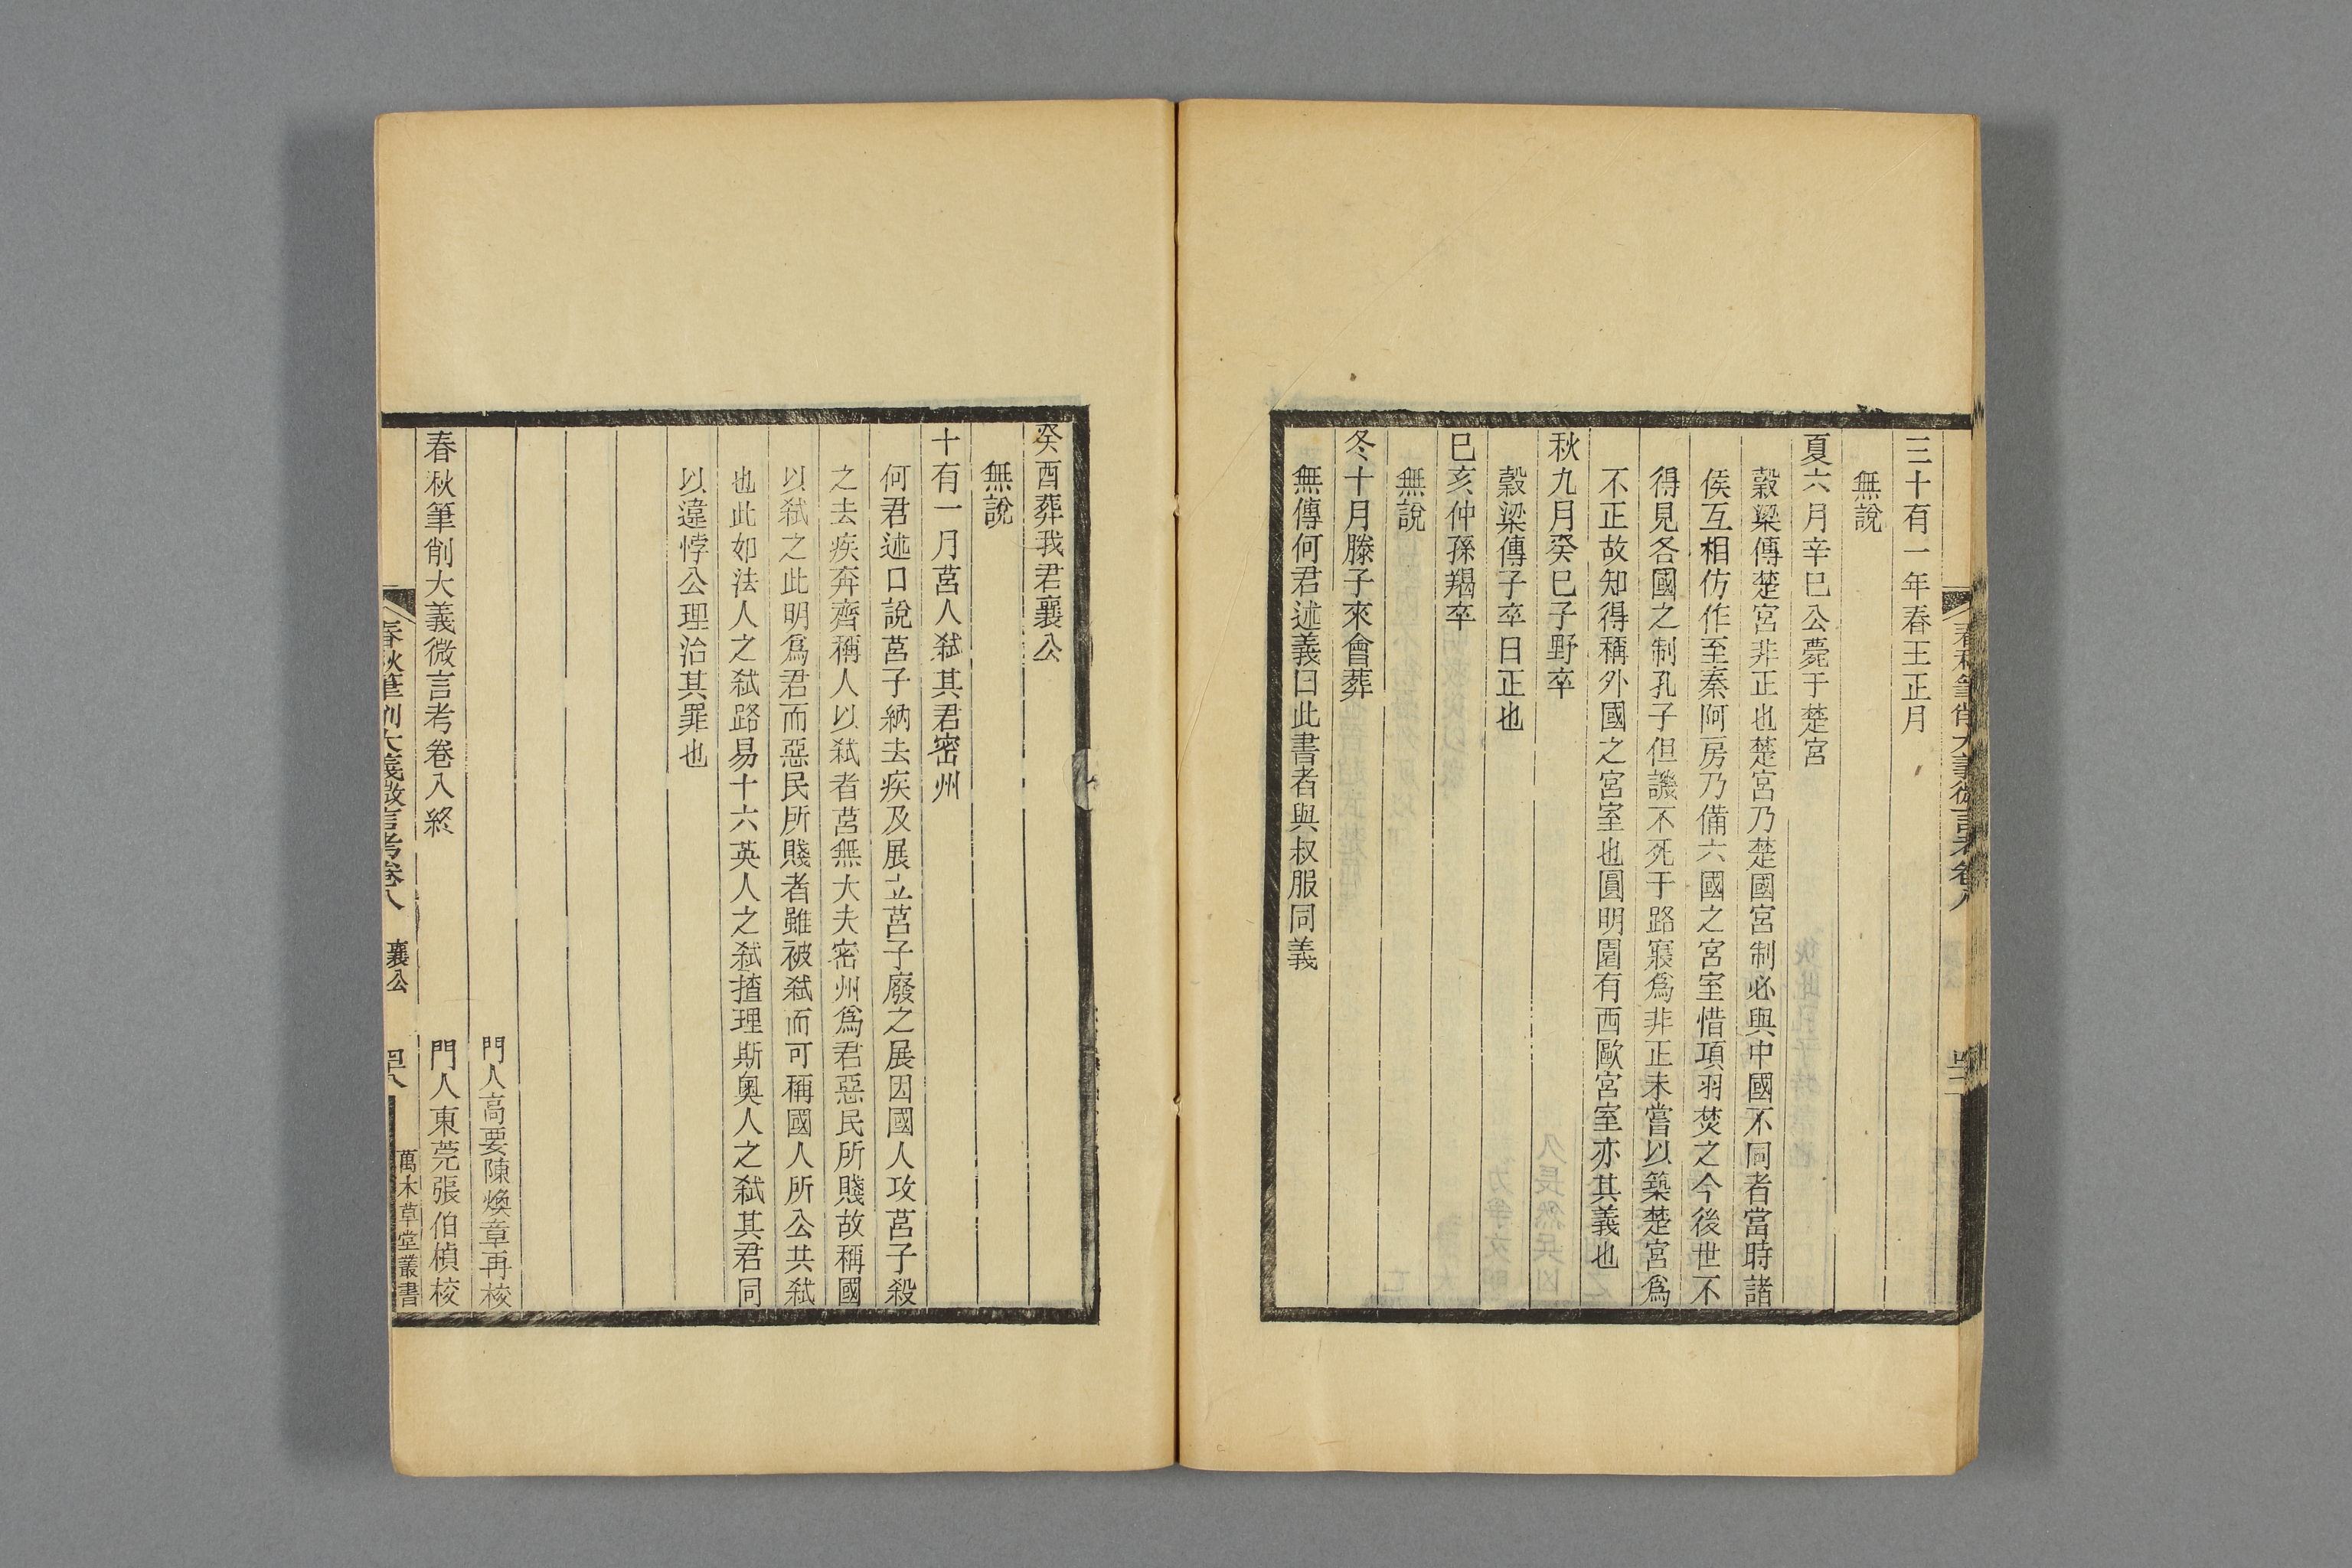 三十有一年春王正月
無說
夏六月辛巳公薨于楚宮
穀梁傳楚宮非正也楚宮乃楚國宮制必與中國不同者當時諸
侯互相仿作至秦阿房乃備六國之宮室惜項羽焚之今後世不
得見各國之制孔子但譏不死于路寢爲非正未嘗以築楚宮爲
不正故知得稱外國之宮室也圓明園有西歐宮室亦其義也
秋九月癸巳子野卒
穀梁傳子卒日正也
巳亥仲孫羯卒
無說
冬十月滕子來會葬
無傳何君述義曰此書者與叔服同義
癸酉葬我君襄公
無說
十有一月莒人弒其君密州
何君述口說莒子納去疾及展立莒子廢之展因國人攻莒子殺
之去疾奔齊稱人以弒者莒無大夫密州爲君惡民所賤故稱國
以弒之此明爲君而惡民所賤者雖被弒而可稱國人所公共弒
也此如法人之弒路易十六英人之弒揸理斯奧人之弒其君同
以違悖公理治其罪也
門人高要陳煥章再校
春秋筆削大義微言考卷八終
門人東莞張伯楨校
春秋筆削大義微言考卷八
襄公
萬木草堂叢書